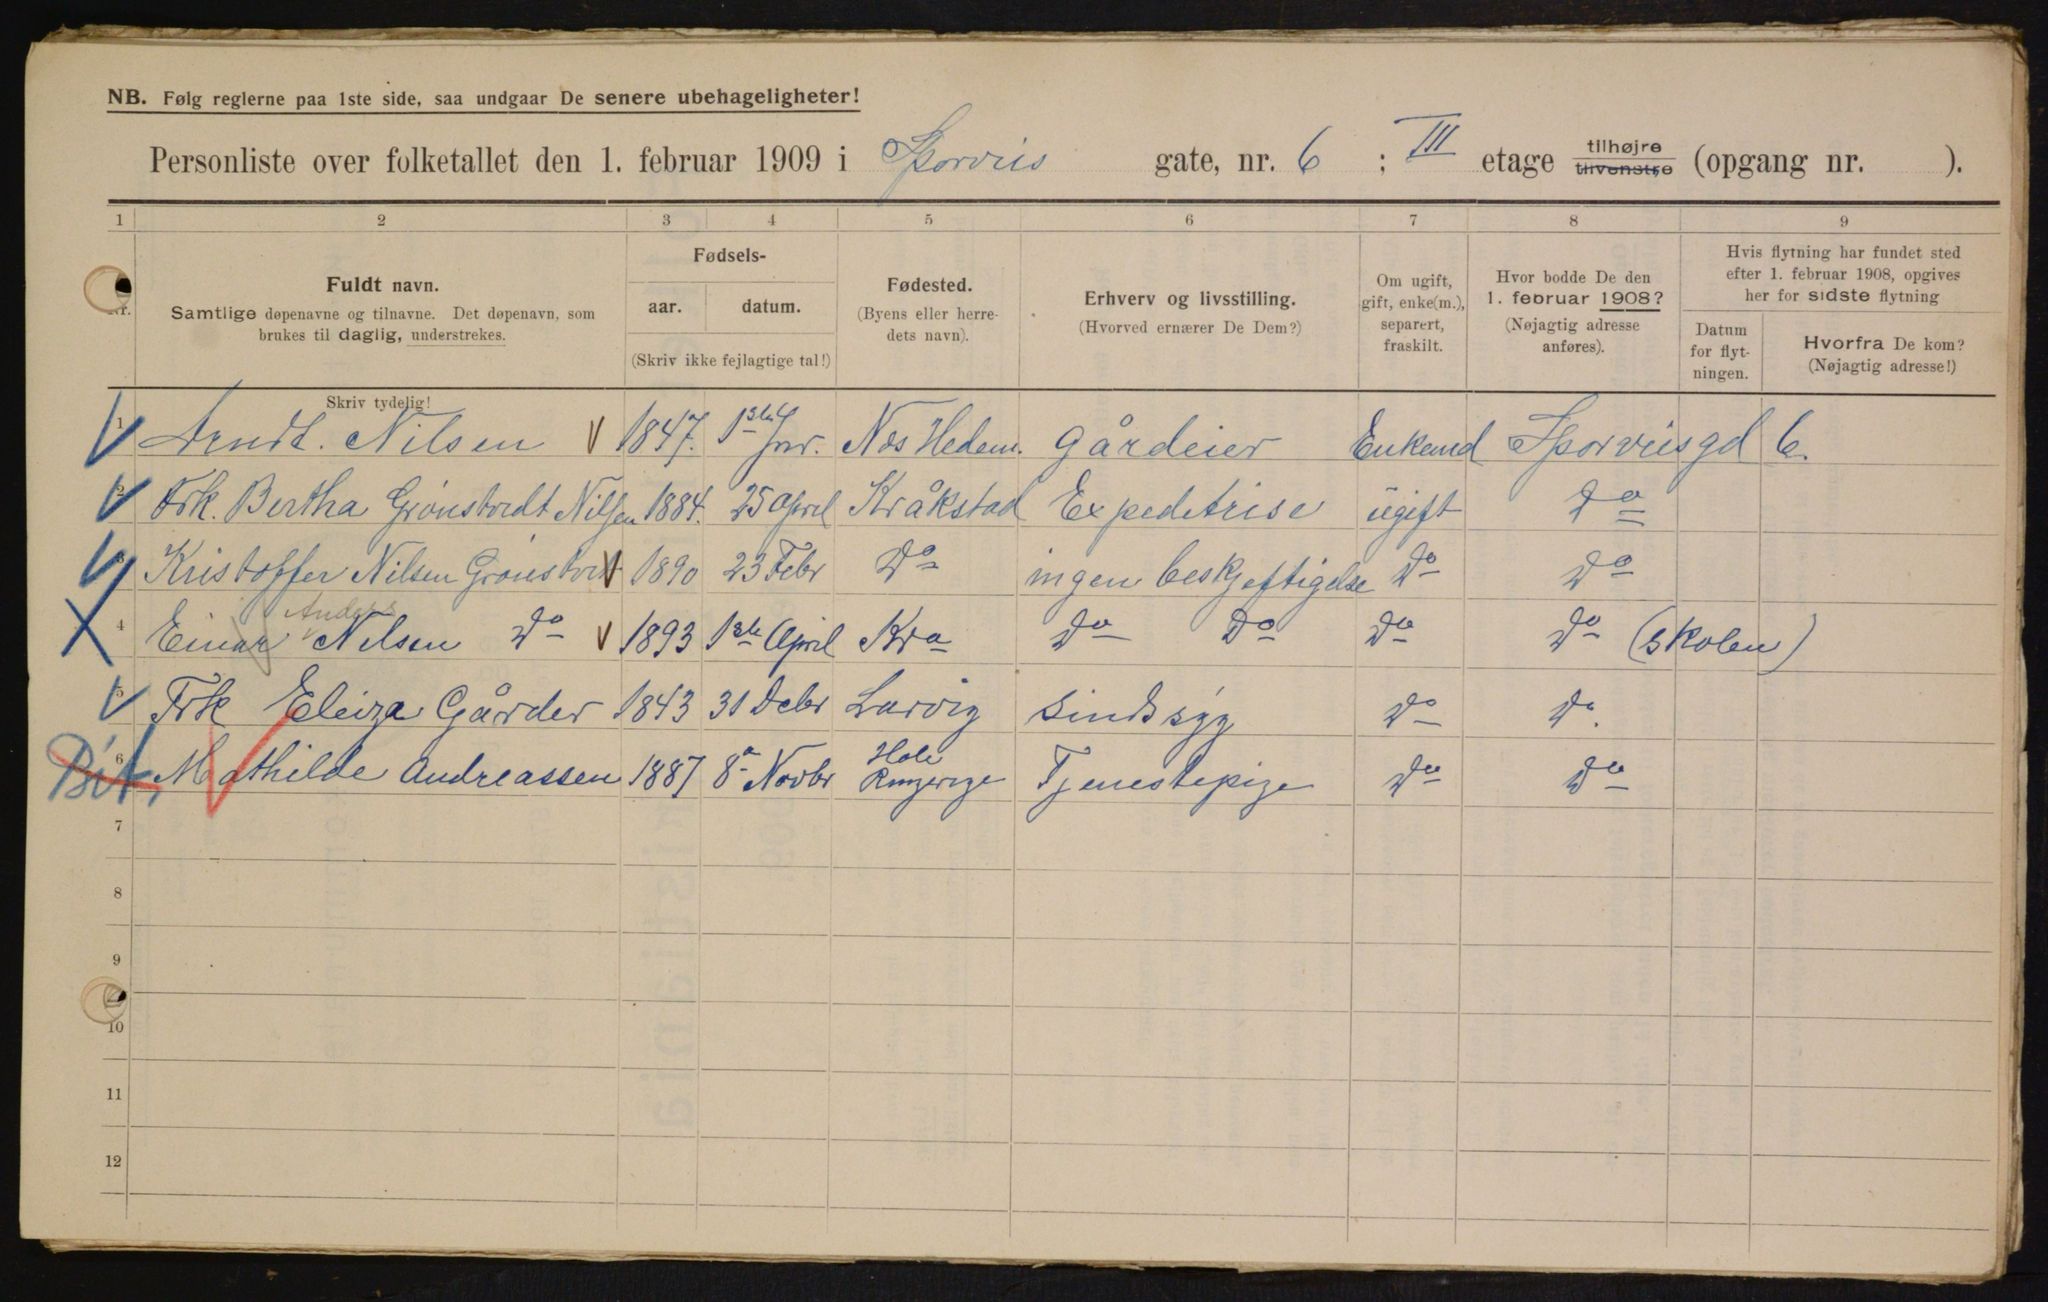 NB. Følg reglerne paa 1ste side, saa undgaar De senere ubehageligheter!
Personliste over folketallet den 1. februar 1909 i Sporveis gate, nr. 6 ; III etage tilhøjre tilvenstre (opgang nr. ).
1 2 3 4 5 6 7 8 9
Nr.
Fuldt navn.
Samtlige døpenavne og tilnavne. Det døpenavn, som
brukes til daglig, understrekes.
Skriv tydelig!
Fødsels-
aar. datum.
(Skriv ikke fejlagtige tal!)
Fødested.
(Byens eller herre-
dets navn).
Erhverv og livsstilling.
(Hvorved ernærer De Dem?)
Om ugift,
gift, enke(m.),
separert,
fraskilt.
Hvor bodde De den
1. februar 1908?
(Nøjagtig adresse
anføres).
Hvis flytning har fundet sted
efter 1. februar 1908, opgives
her for sidste flytning
Datum
for flyt-
ningen.
Hvorfra De kom?
(Nøjagtig adresse!)
1 Arndt. Nilsen 1847. 1ste Jnr. Nes Hedem. Gårdeier Enkemd Sporveisgd 6.
2 Frk. Bertha Grønstvedt Nilsen 1884. 25 April Kråkstad Expeditrise ugift Do
3 Kristoffer Nilsen Grønstvet 1890 23 Febr Do ingen beskjeftigelse Do Do
Anders
4 Einar Nilsen Do 1893 1ste April Kra Do Do Do Do (skolen)
5 Frk Eleiza Gårder 1843 31 Debr Larvig Sindssyg Do Do.
6 Mathilde Andreassen 1887 8de Novbr Hole Ringerige Tjenestepige Do Do
7
8
9
10
11
12